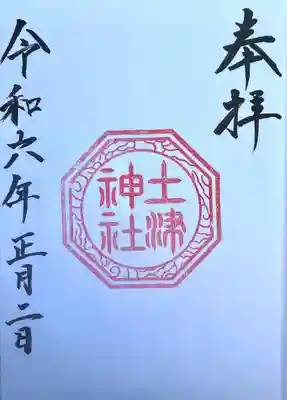 奉拝
土津
神社
令和六年正月二日